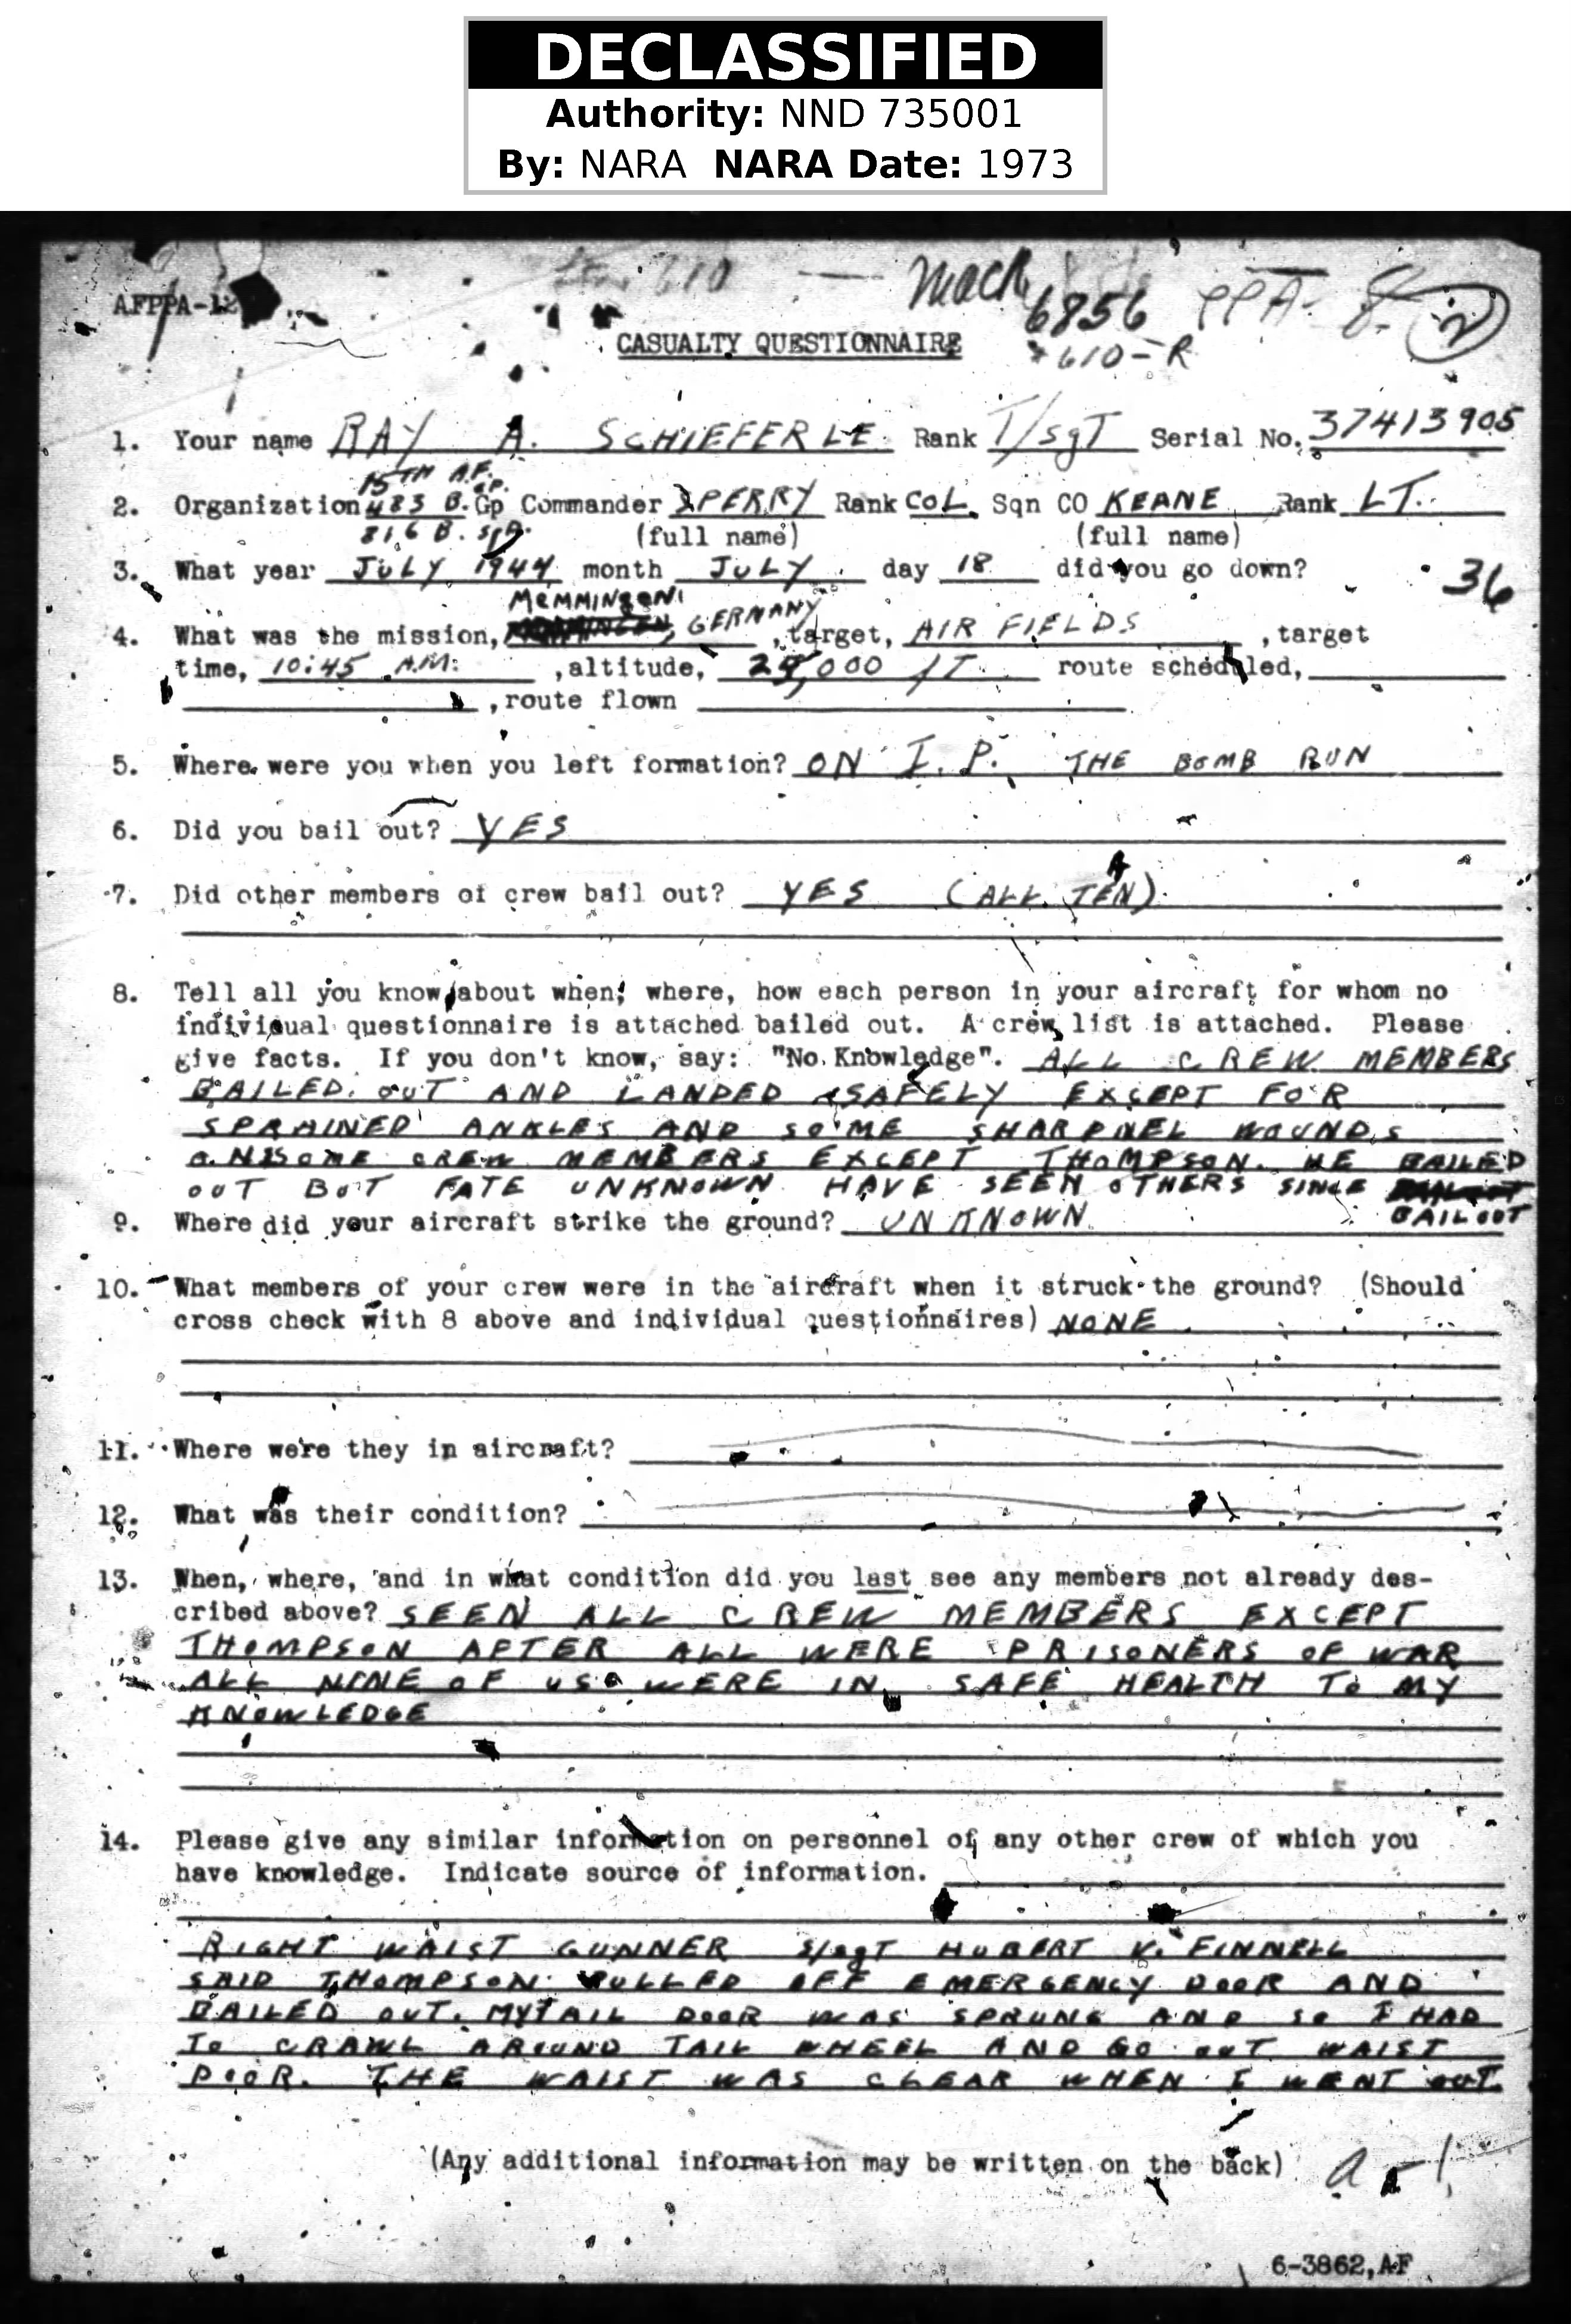 DECLASSIFIED
Authority: NND 735001
By: NARA NARA Date: 1973
AFPPA-12
610 — Mack 6856 PPA- 8- 2
CASUALTY QUESTIONNAIRE
610-R
1. Your name RAY A. SCHIEFERLE Rank T/sgT Serial No. 37413905
15TH A.F.
2. Organization 483 B. Gp. Gp Commander SPERRY Rank COL. Sqn CO KEANE Rank LT.
816 B. sqd. (full name) (full name)
3. What year JULY 1944 month JULY day 18 did you go down?
36
MeMMINgeN
4. What was the mission, GERMANY, target, AIR FIELDS, target
time, 10:45 A.M. , altitude, 25,000 fT. route scheduled,
, route flown
5. Where were you when you left formation? ON I.P. THE BOMB RUN
6. Did you bail out? YES
7. Did other members of crew bail out? YES (ALL TEN)
8. Tell all you know about when, where, how each person in your aircraft for whom no
individual questionnaire is attached bailed out. A crew list is attached. Please
give facts. If you don't know, say: "No Knowledge". ALL CREW MEMBERS
BAILED OUT AND LANDED SAFELY EXCEPT FOR
SPRAINED ANKLES AND SOME SHARPNEL WOUNDS
ON SOME CREW MEMBERS EXCEPT THOMPSON. HE BAILED
OUT BUT FATE UNKNOWN HAVE SEEN OTHERS SINCE
BAIL OUT
9. Where did your aircraft strike the ground? UNKNOWN
10. What members of your crew were in the aircraft when it struck the ground? (Should
cross check with 8 above and individual questionnaires) NONE
11. Where were they in aircraft?
12. What was their condition?
13. When, where, and in what condition did you last see any members not already des-
cribed above? SEEN ALL CREW MEMBERS EXCEPT
THOMPSON AFTER ALL WERE PRISONERS OF WAR
ALL NINE OF US WERE IN SAFE HEALTH TO MY
KNOWLEDGE
14. Please give any similar information on personnel of any other crew of which you
have knowledge. Indicate source of information.
RIGHT WAIST GUNNER S/sgT HUBERT V. FINNELL
SAID THOMPSON PULLED OFF EMERGENCY DOOR AND
BAILED OUT. MY TAIL DOOR WAS SPRUNG AND SO I HAD
TO CRAWL AROUND TAIL WHEEL AND GO OUT WAIST
DOOR. THE WAIST WAS CLEAR WHEN I WENT OUT.
(Any additional information may be written on the back) a-1
6-3862,AF